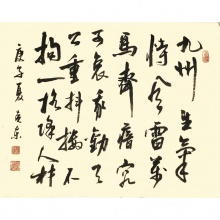 九州生氣
恃風雷萬
馬齊瘖究
可哀我勸天
公重抖擻不
拘一格降人材
庚子夏